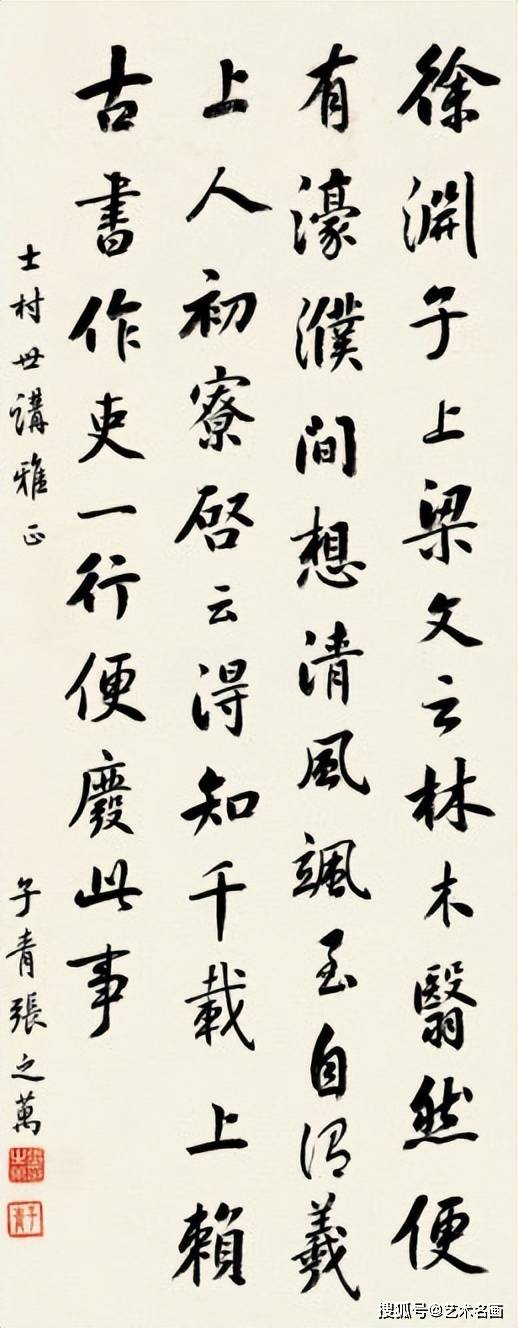 徐淵子上梁文云林木翳然便
有濠濮間想清風颯至自谓羲
上人初寮啓云得知千載上賴
古書作吏一行便廢此事
士村世講雅正
子青張之萬
子青
搜狐号@艺术名画